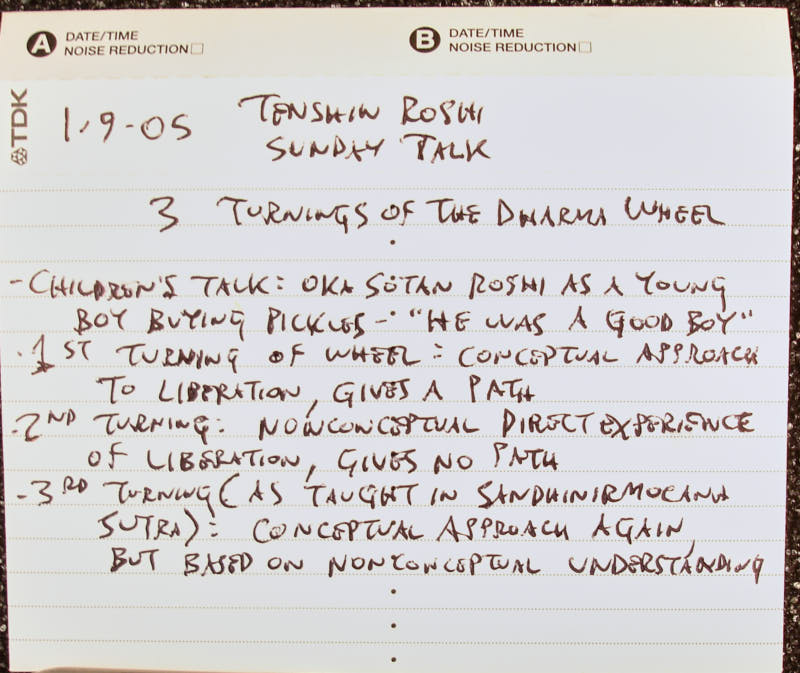 A DATE/TIME
NOISE REDUCTION
B DATE/TIME
NOISE REDUCTION
TDK
1-9-05 TENSHIN ROSHI
SUNDAY TALK
3 TURNINGS OF THE DHARMA WHEEL
- CHILDREN'S TALK: OKA SŌTAN ROSHI AS A YOUNG
BOY BUYING PICKLES - "HE WAS A GOOD BOY"
- 1ST TURNING OF WHEEL: CONCEPTUAL APPROACH
TO LIBERATION, GIVES A PATH
- 2ND TURNING: NONCONCEPTUAL DIRECT EXPERIENCE
OF LIBERATION, GIVES NO PATH
- 3RD TURNING (AS TAUGHT IN SANDHINIRMOCANA
SUTRA): CONCEPTUAL APPROACH AGAIN,
BUT BASED ON NONCONCEPTUAL UNDERSTANDING